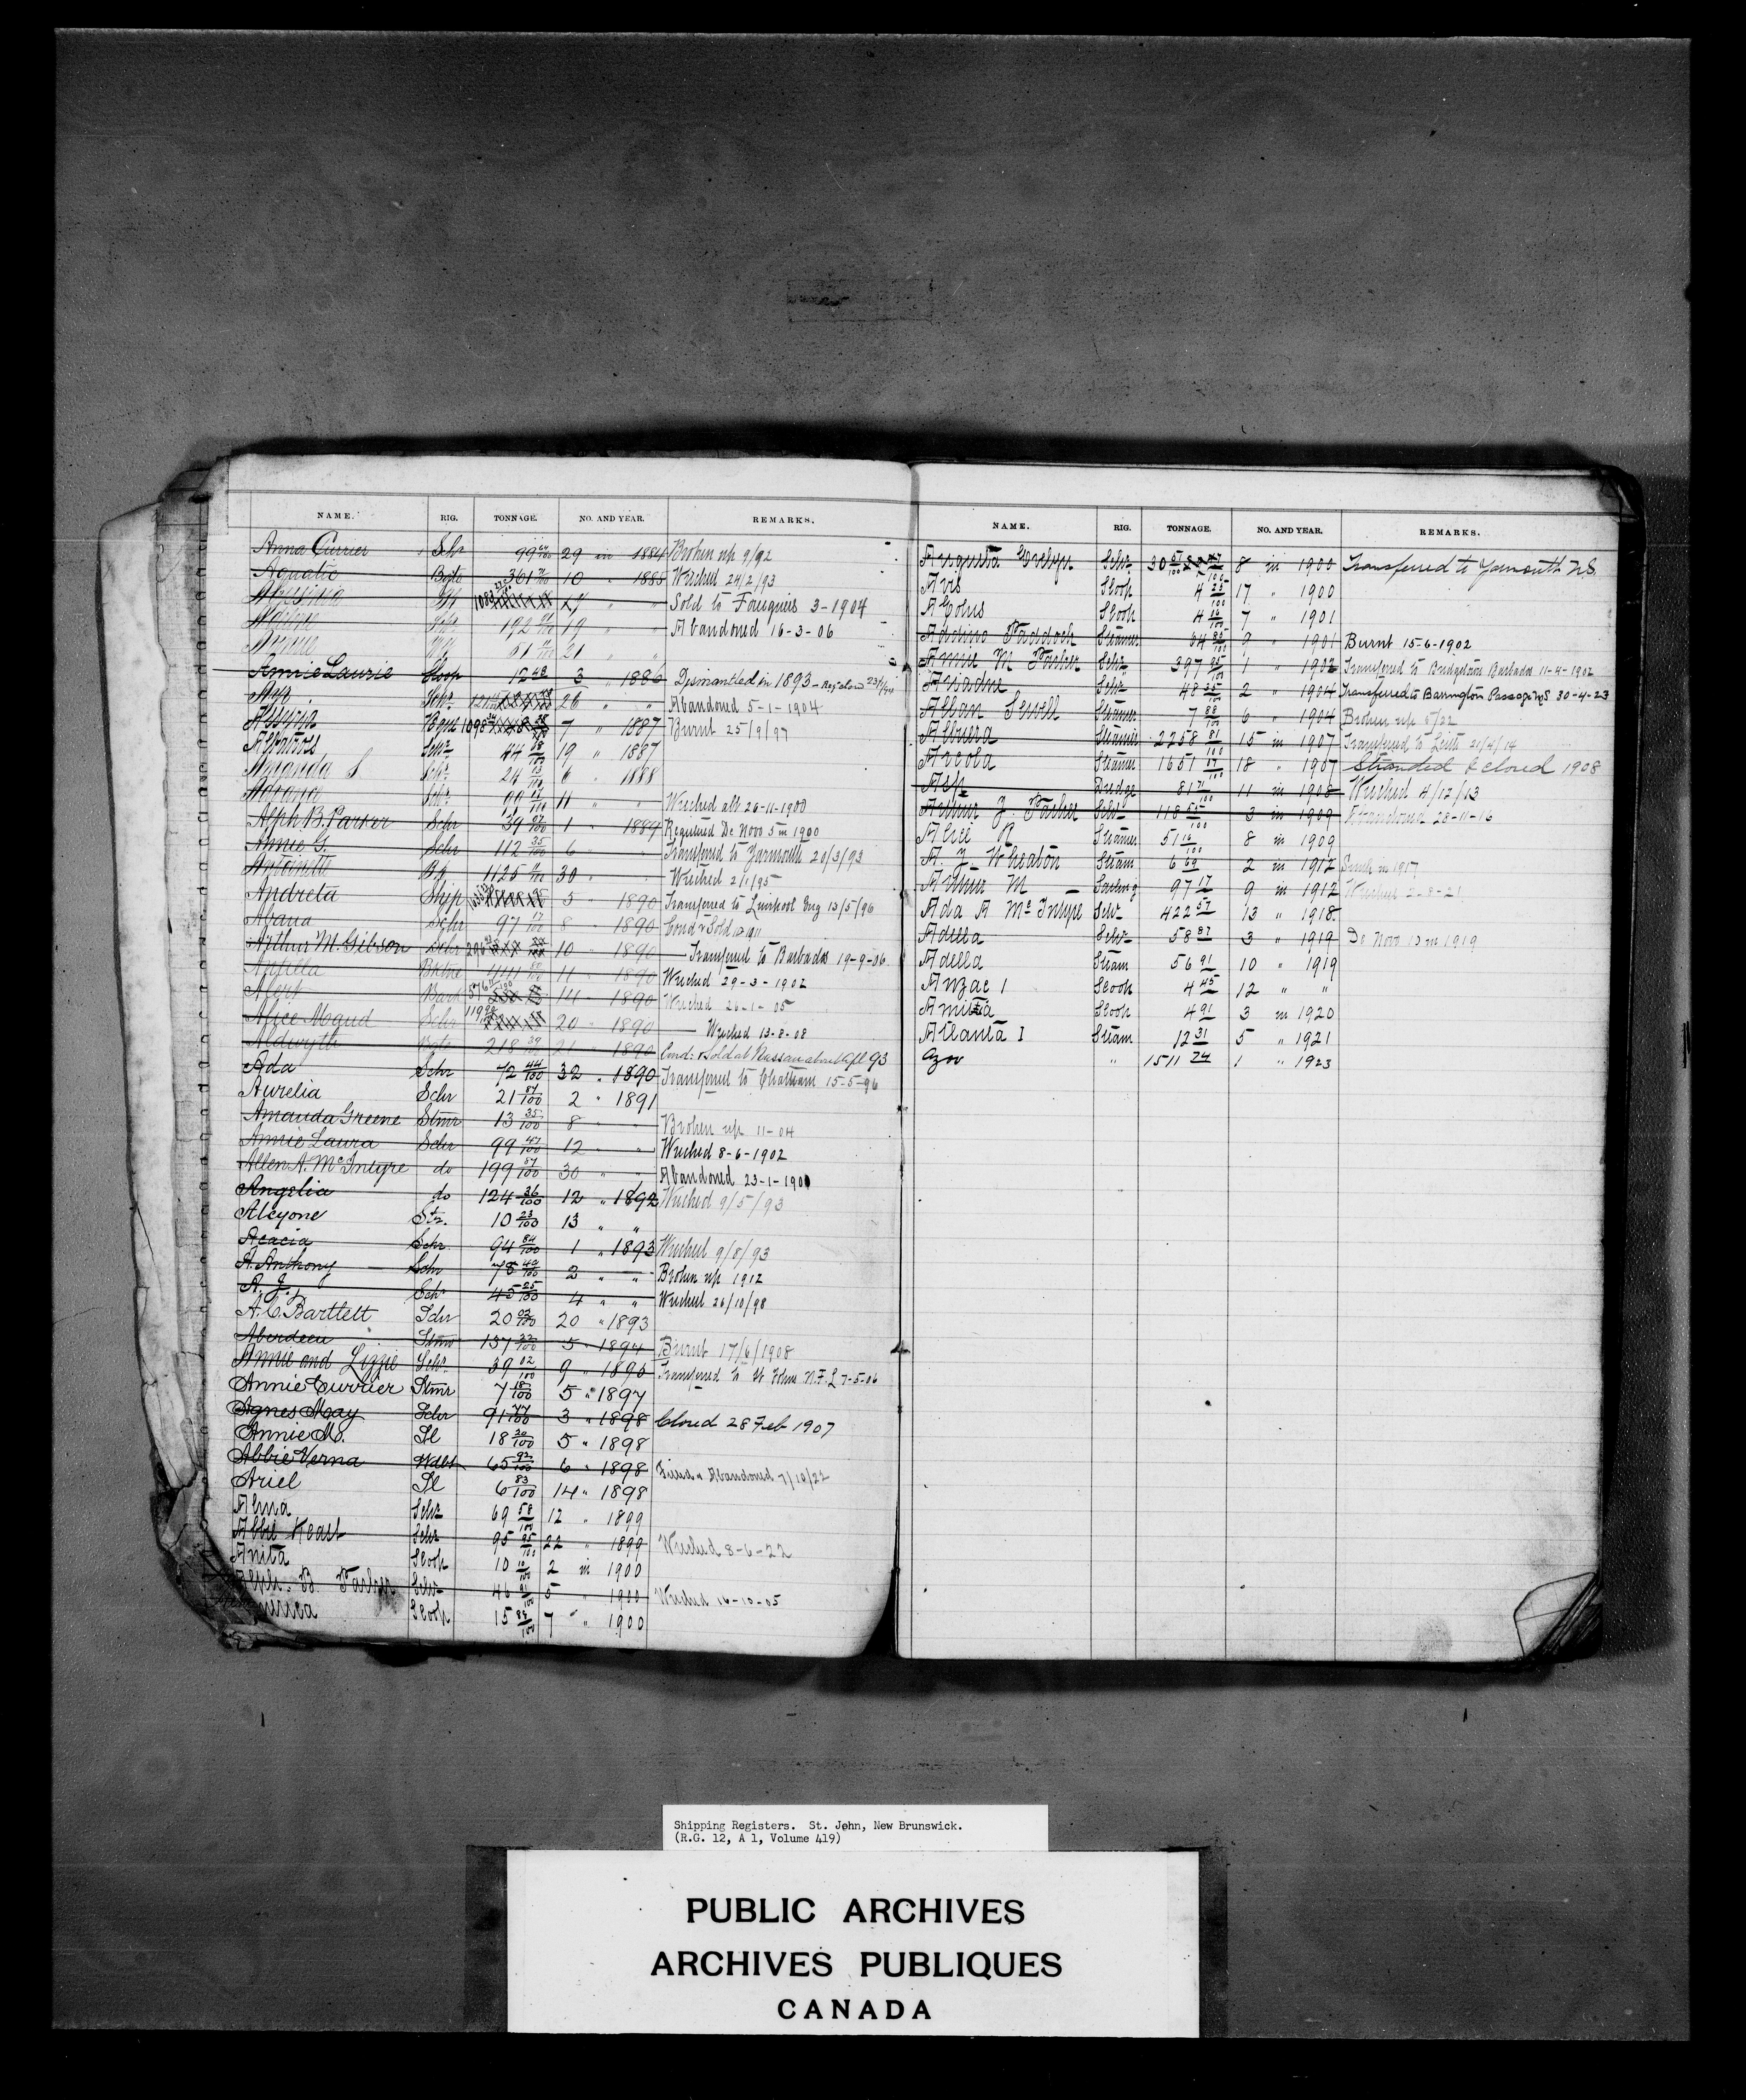 NAME. RIG. TONNAGE. NO. AND YEAR. REMARKS.
Anna Currier Schr 99 29 in 1884 Broken up 9/92
Aquatic Bgtn 361 10 " 1885 Wrecked 24/2/93
" " Sold to Foreigners 3-1904
192 19 " " Abandoned 16-3-06
Annie 61 21 " "
Annie Laurie Sloop 12 48 3 " 1886 Dismantled in 1893 - Reg. closed
Schr 26 " " Abandoned 5-1-1904
Bqne 7 " 1887 Burnt 25/9/97
Albatross Schr 44 19 " 1887
Miranda S Schr 24 6 " 1888
Schr 99 11 " " Wrecked abt 26-11-1900
Alph B. Parker Schr 39 1 " 1889 Registered De Novo 5 in 1900
Annie G. Schr 112 35/100 6 " " Transferred to Yarmouth 20/3/93
Antoinette Bk 1125 30 " " Wrecked 2/1/95
Andreta Ship 5 " 1890 Transferred to Liverpool Eng 13/5/96
Schr 97 17/100 8 " 1890 Cond & Sold
Arthur M. Gibson Schr 10 " 1890 Transferred to Barbados 19-9-06
Antilla Bktne 444 11 " 1890 Wrecked 29-3-1902
Alert Bark 14 " 1890 Wrecked 26-1-05
Alice Maud Schr 20 " 1890 Wrecked 13-8-08
Aldwyth Bgtn 218 39/100 21 " 1890 Cond: & Sold at Nassau about Apl 93
Ada Schr 72 44/100 32 " 1890 Transferred to Chatham 15-5-96
Aurelia Schr 21 81/100 2 " 1891
Amanda Greene Stmr 13 35/100 8 " " Broken up 11-04
Annie Laura Schr 99 47/100 12 " " Wrecked 8-6-1902
Allen A. McIntyre do 199 57/100 30 " " Abandoned 23-1-1900
Angelia do 124 36/100 12 " 1892 Wrecked 9/5/93
Alcyone Str. 10 23/100 13 " "
Acacia Schr. 94 84/100 1 " 1893 Wrecked 9/8/93
A. Anthony Schr 78 40/100 2 " " Broken up 1912
A. J. Schr 45 25/100 4 " " Wrecked 26/10/98
A. C. Bartlett Schr 20 02/100 20 " 1893
Aberdeen Stmr 137 32/100 5 " 1894 Burnt 17/6/1908
Annie and Lizzie Schr. 39 02/100 9 " 1896 Transferred to St Johns N.F.L 7-5-06
Annie Currier Stmr 7 18/100 5 " 1897
Agnes May Schr 91 77/100 3 " 1898 Closed 28 Feb 1907
Annie M. Sl 18 30/100 5 " 1898
Abbie Verna Wdbt 65 92/100 6 " 1898 Filled & Abandoned 7/10/22
Ariel Sl 6 83/100 14 " 1898
Alma Schr 69 58/100 12 " 1899
Abbie Keast Schr 95 95/100 22 " 1899 Wrecked 8-6-22
Anita Sloop 10 10/100 2 in 1900
Alph. B. Parker Schr 46 81/100 5 " 1900 Wrecked 16-10-05
Sloop 15 84/100 7 " 1900
NAME. RIG. TONNAGE. NO. AND YEAR. REMARKS.
Augusta Evelyn Schr 30 8 in 1900 Transferred to Yarmouth N.S.
Avis Sloop 4 25/100 17 " 1900
Sloop 4 7 " 1901
Addino Paddock Steamer 64 85/100 9 " 1901 Burnt 15-6-1902
Annie M Parker Schr 397 95/100 1 " 1902 Transferred to Bridgetown Barbados 11-4-1902
Ariadne Schr 48 35/100 2 " 1904 Transferred to Barrington Passage N.S 30-4-23
Alban Sewell Steamer 7 88/100 6 " 1904 Broken up 5/22
Albuera Steamer 2258 81/100 15 in 1907 Transferred to Leith 21/4/14
Areola Steamer 1651 07/100 18 " 1907 Stranded & closed 1908
Dredge 81 71/100 11 in 1908 Wrecked 4/12/13
Arthur J. Parker Schr 118 3 in 1909 Abandoned 28-11-16
Alice R Steamer 51 16/100 8 in 1909
A. Y. Wheaton Steam 6 69 2 in 1912 Sunk in 1917
Arthur M Sailing 97 17 9 in 1912 Wrecked 2-8-21
Ada A McIntyre Schr 422 57 13 " 1918
Adella Schr 58 87 3 " 1919 De Novo 10 in 1919
Adella Steam 56 91 10 " 1919
Anzac 1 Sloop 4 45 12 " "
Amista Sloop 4 91 3 in 1920
Atlanta I Steam 12 31 5 " 1921
Azov " 1511 74 1 " 1923
Shipping Registers. St. John, New Brunswick.
(R.G. 12, A 1, Volume 419)
PUBLIC ARCHIVES
ARCHIVES PUBLIQUES
CANADA